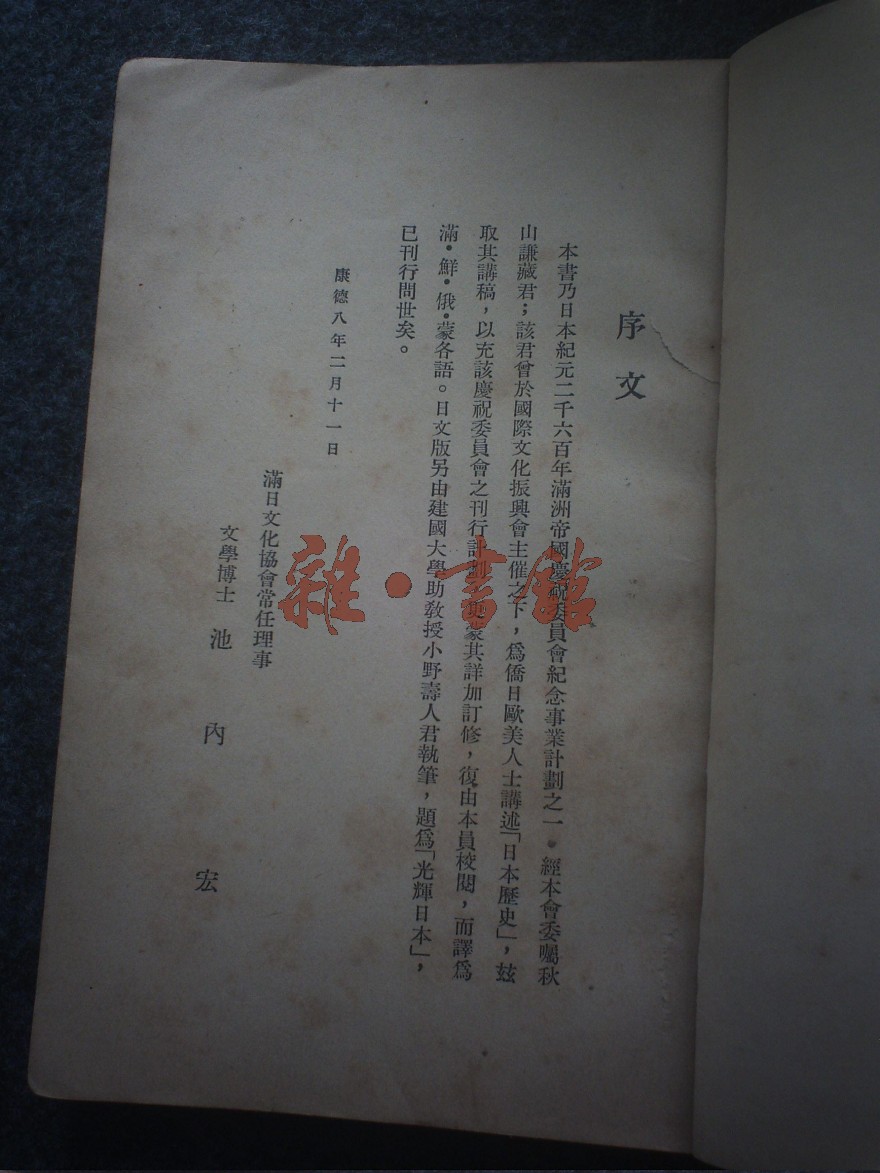 序文
本書乃日本紀元二千六百年滿洲帝國慶祝委員會紀念事業計劃之一。經本會委囑秋
山謙藏君；該君曾於國際文化振興會主催之下，爲僑日歐美人士講述「日本歷史」，玆
取其講稿，以充該慶祝委員會之刊行計劃，蒙其詳加訂修，復由本員校閱，而譯爲
滿•鮮•俄•蒙各語。日文版另由建國大學助敎授小野壽人君執筆，題爲「光輝日本」，
已刊行問世矣。
康德八年二月十一日
滿日文化協會常任理事
文學博士 池內宏
雜•書館